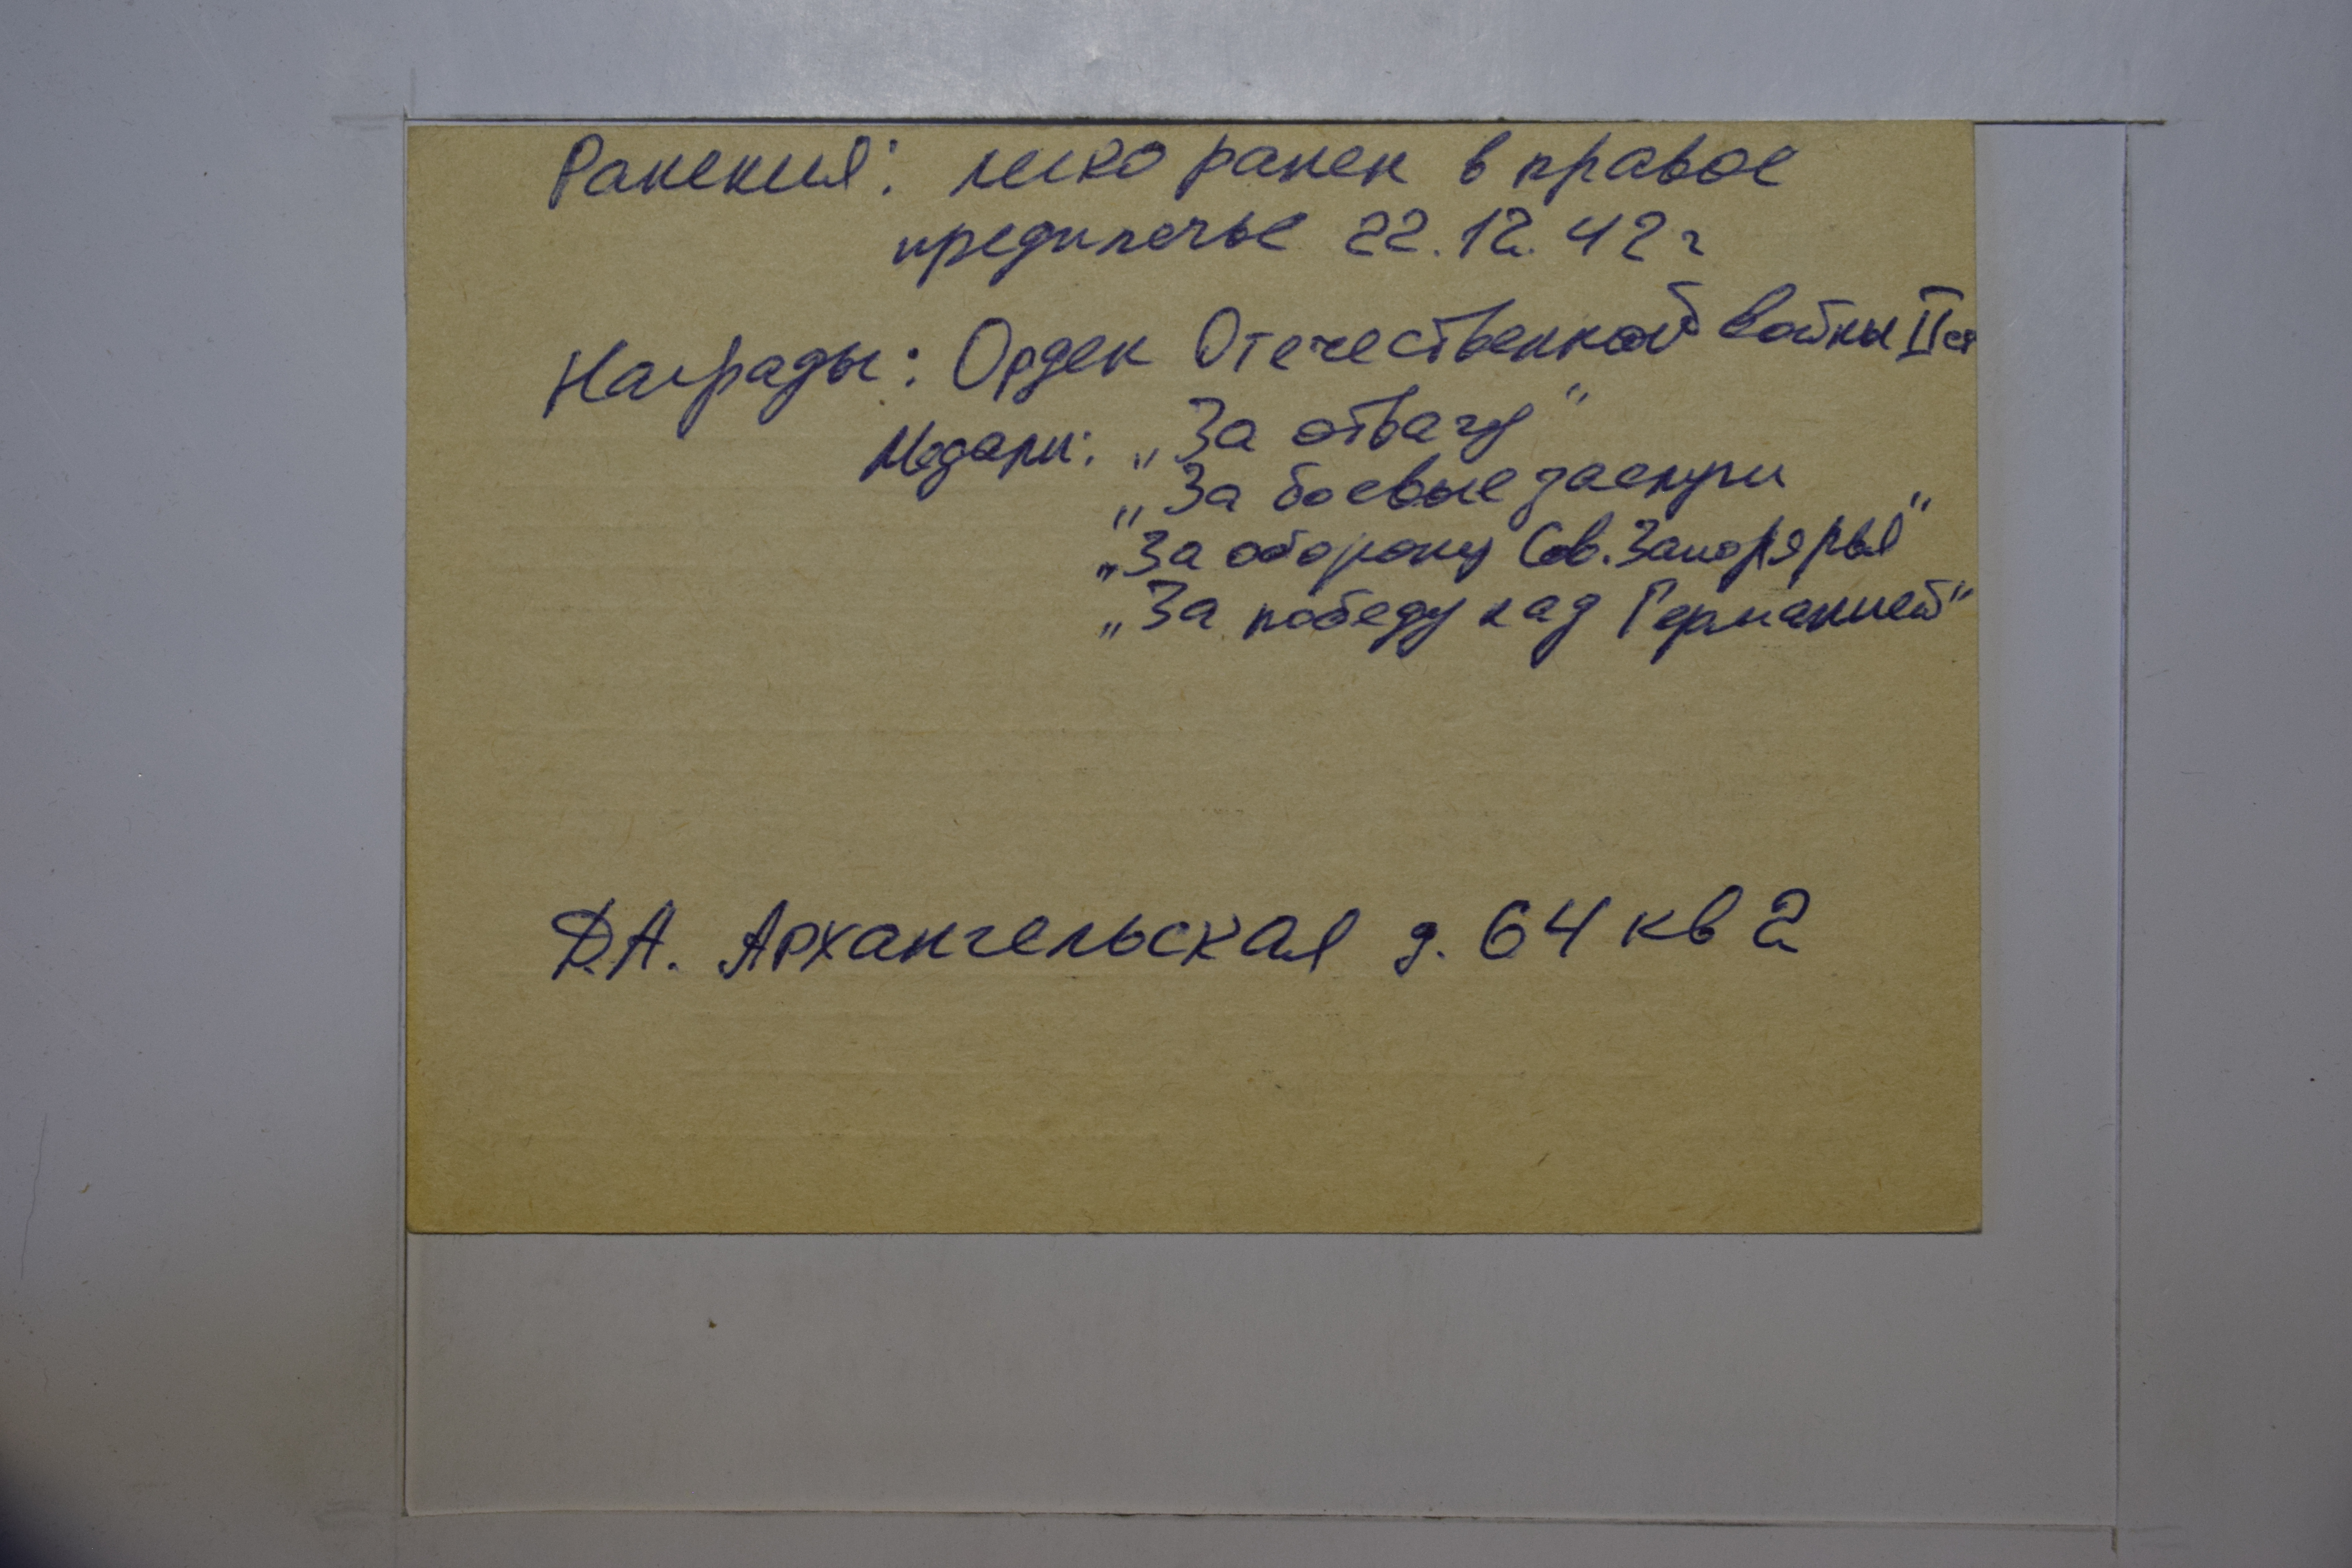 Ранения: легко ранен в правое
предплечье 22.12.42 г
Награды: Орден Отечественной войны II ст
Медали: „За отвагу"
„За боевые заслуги"
„За оборону Сов. Заполярья"
„За победу над Германией"
Д.А. Архангельская д. 64 кв 2